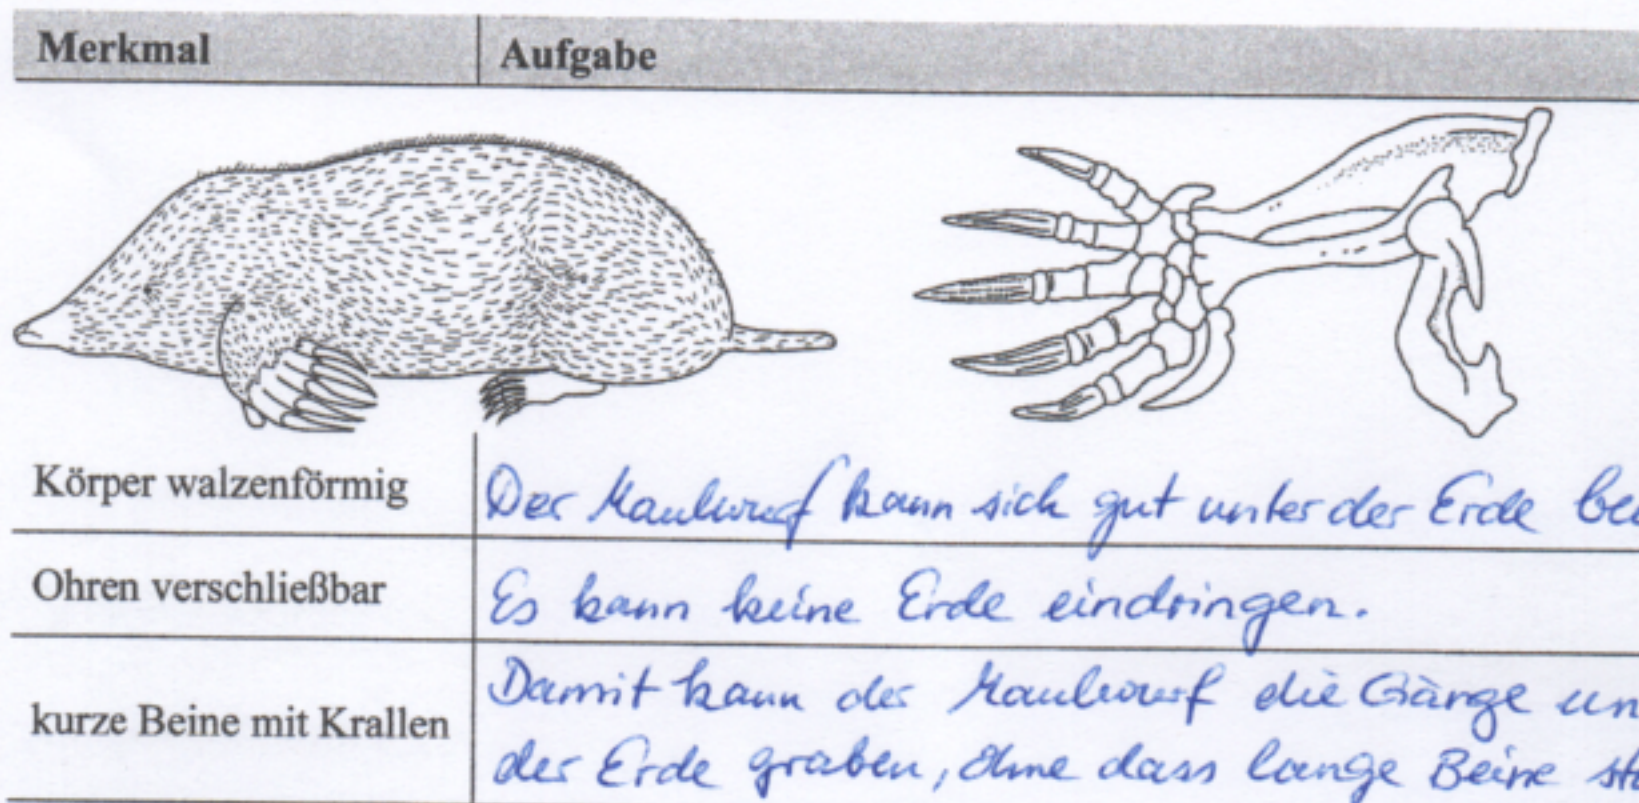 Merkmal Aufgabe
Körper walzenförmig Der Maulwurf kann sich gut unter der Erde
Ohren verschließbar Es kann keine Erde eindringen.
kurze Beine mit Krallen Damit kann der Maulwurf die Gänge
der Erde graben, ohne dass lange Beine